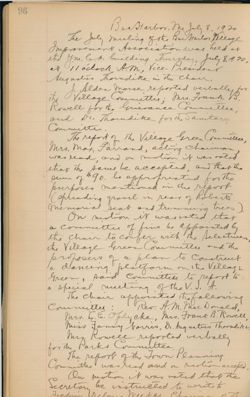 96
Bar Harbor, Me July 8, 1920
The July meeting of the Bar Harbor Village
Improvement Association was held at
the Y.M.C.A. building Thursday, July 8, 1920,
at 11 o'clock A.M. Vice President
Augustus Thorndike in the chair.
Alden Morse, reported verbally for
the Village Committee, Mrs. Frank B.
Rowell for the Finance Committee
and Dr. Thorndike for the Sanitary
Committee
The report of the Village Green Committee,
Mrs. Max Farrand, acting Chairman
was read, and on motion it was voted
that the same be accepted, and that the
sum of $90. be appropriated for the
purposes mentioned in the report
(spreading gravel in rear of
Memorial Seat and pruning trees)
On motion it was voted that
a committee of five be appointed by
the chair to confer with the Selectmen,
the Village Green Committee and the
proposers of a plan to construct
a dancing platform on the Village
Green, said Committee to report to
a special meeting of the V. I. A.
The Chair appointed the following
Committee: Rev. A. M. McDonald,
Mrs. E. E. Mrs. Frank B. Rowell
Miss Fanny Norris, Dr. Augustus Thorndike
Mrs. Rowell reported verbally
for the Parks Committee
The report of the Town Planning
Committee was read and on motion accepted
On motion it was voted that the
Secretary be instructed to write to